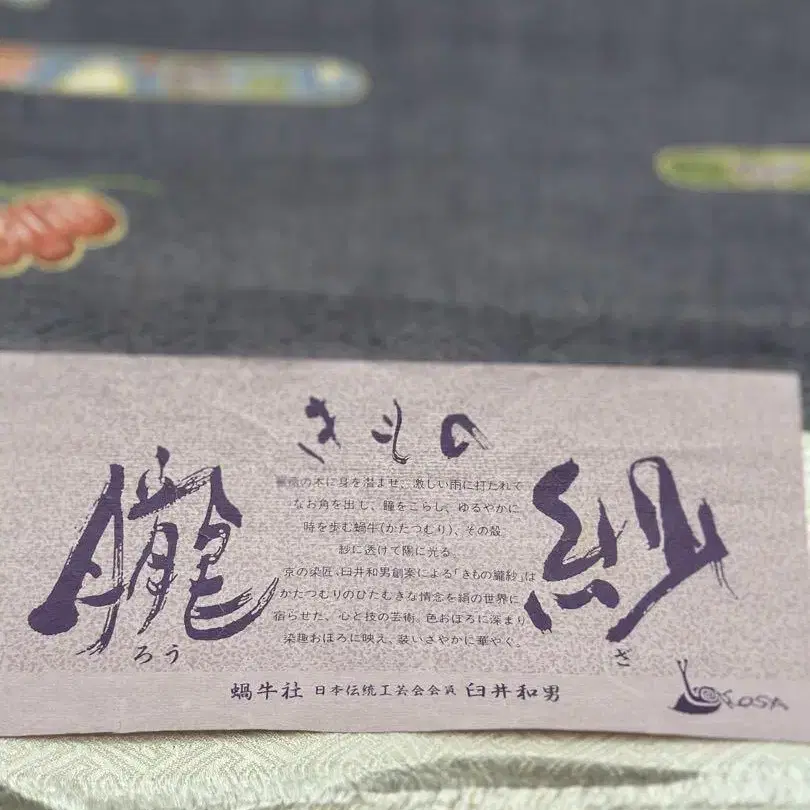 きもの
朧
ろう
の木に身を潜ませ、激しい雨に打たれて
なお角を出し、瞳をこらし、ゆるやかに
時を歩む蝸牛(かたつむり)、その殻
紗に透けて陽に光る。
京の染匠、臼井和男創案による「きもの朧紗」は
かたつむりのひたむきな情念を絹の世界に
宿らせた、心と技の芸術。色おぼろに深まり
染趣おぼろに映え、装いさやかに華やぐ。
ざ
蝸牛社 日本伝統工芸会会員 臼井和男